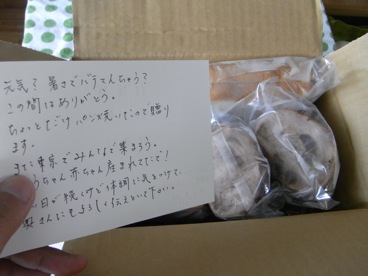 元気？暑さでバテてんちゃう？
この間はありがとう。
ちょっとだけ パン焼いたので贈り
ます。
また 東京でみんなで集まろう。
うちゃん 赤ちゃん産まれてたで！
日が続くけど 体調に気をつけて。
奥さんにもよろしく伝えといて下さい。